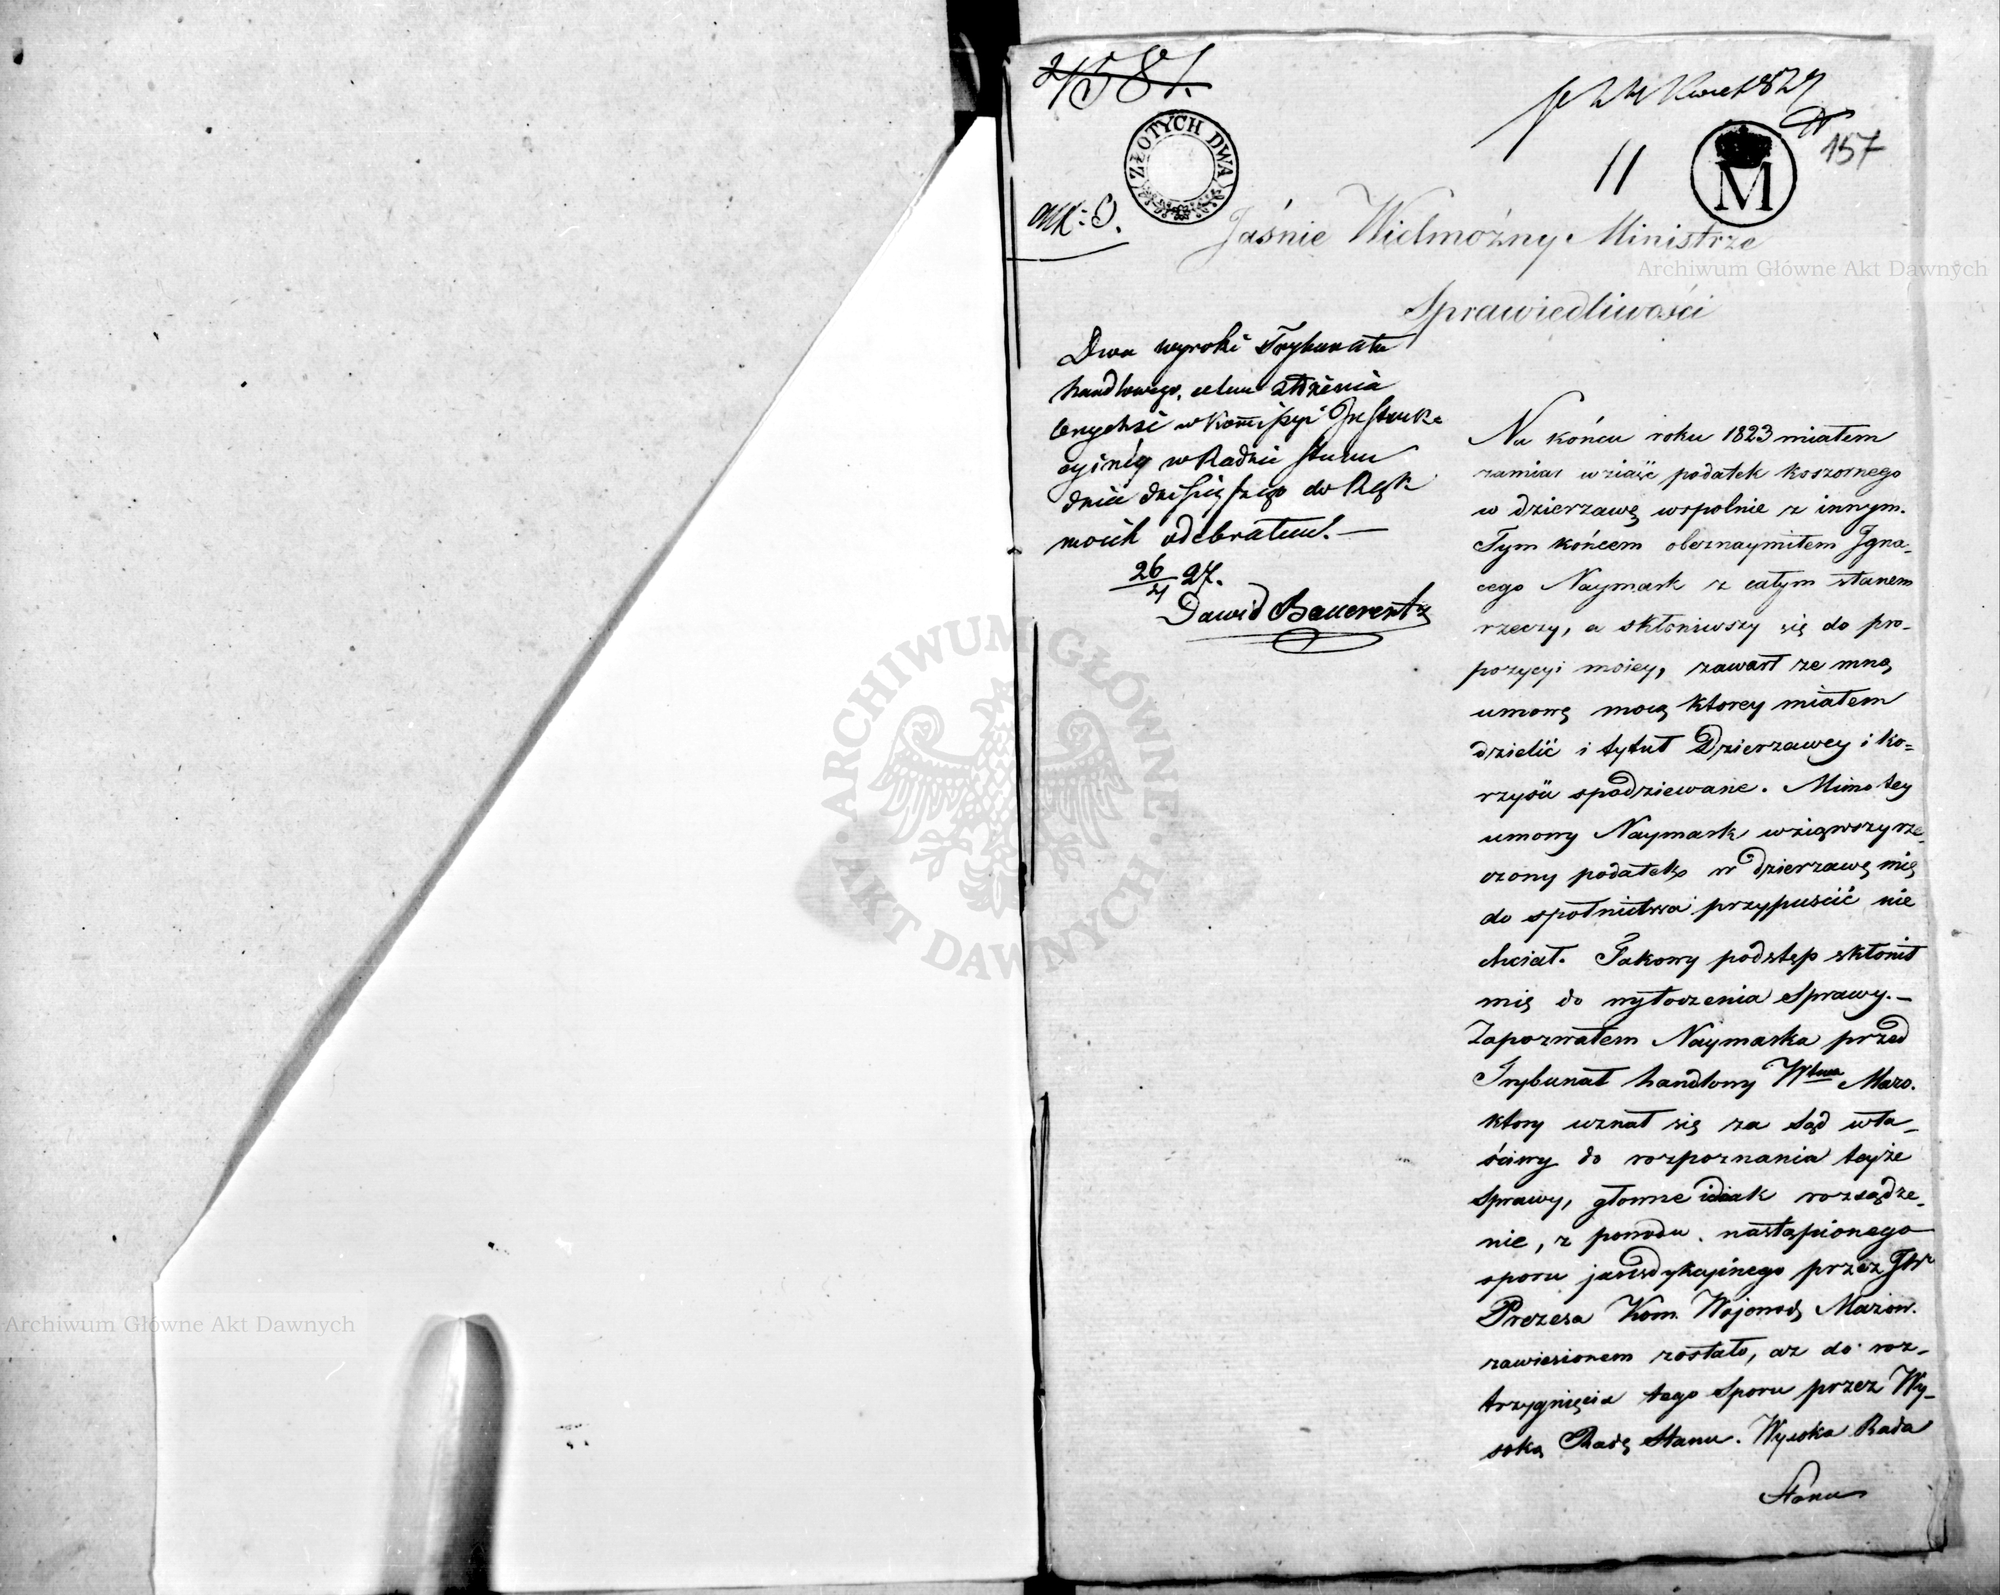 4581.
pr 24 Kwiet 1827
157
11
ZŁOTYCH DWA
M
ax: 0.
Jaśnie Wielmożny Ministrze
Sprawiedliwości
Dwa wyroki Trybunału
handlowego, celem złożenia
onychże w Kommissyi Instruk-
cyinéy w Radzie Stanu
dnia dzisieyszego do Rąk
moich odebrałem. —
26/4 27.
Dawid Bauerertz
Na końcu roku 1823 miałem
zamiar wziąść podatek koszernego
w dzierzawę wspolnie z innym.
Tym końcem obeznaymiłem Igna-
cego Naymark z całym stanem
rzeczy, a skłoniwszy się do pro-
pozycyi moiey, zawarł ze mną
umowę mocą ktorey miałem
dzielić i tytuł Dzierzawcy i ko=
rzyści spodziewane. Mimo tey
umowy Naymark wziąwszy rze-
czony podatek w dzierzawę mię
do społnictwa przypuścić nie
chciał. Takowy podstęp skłonił
mię do wytoczenia Sprawy. —
Zapozwałem Naymarka przed
Trybunał handlowy Wtwa Mazo.
ktory uznał się za Sąd wła-
ściwy do rozpoznania teyże
Sprawy, głowne iednak rozsądze-
nie, z powodu nastąpionego
sporu jurisdykcyinego przez JW
Prezesa Kom. Wojewodz Mazow.
zawieszonem zostało, az do roz-
trzygnięcia tego Sporu przez Wy-
soką Radę Stanu. Wysoka Rada
Stanu
Archiwum Główne Akt Dawnych
ARCHIWUM GŁÓWNE AKT DAWNYCH
Archiwum Główne Akt Dawnych